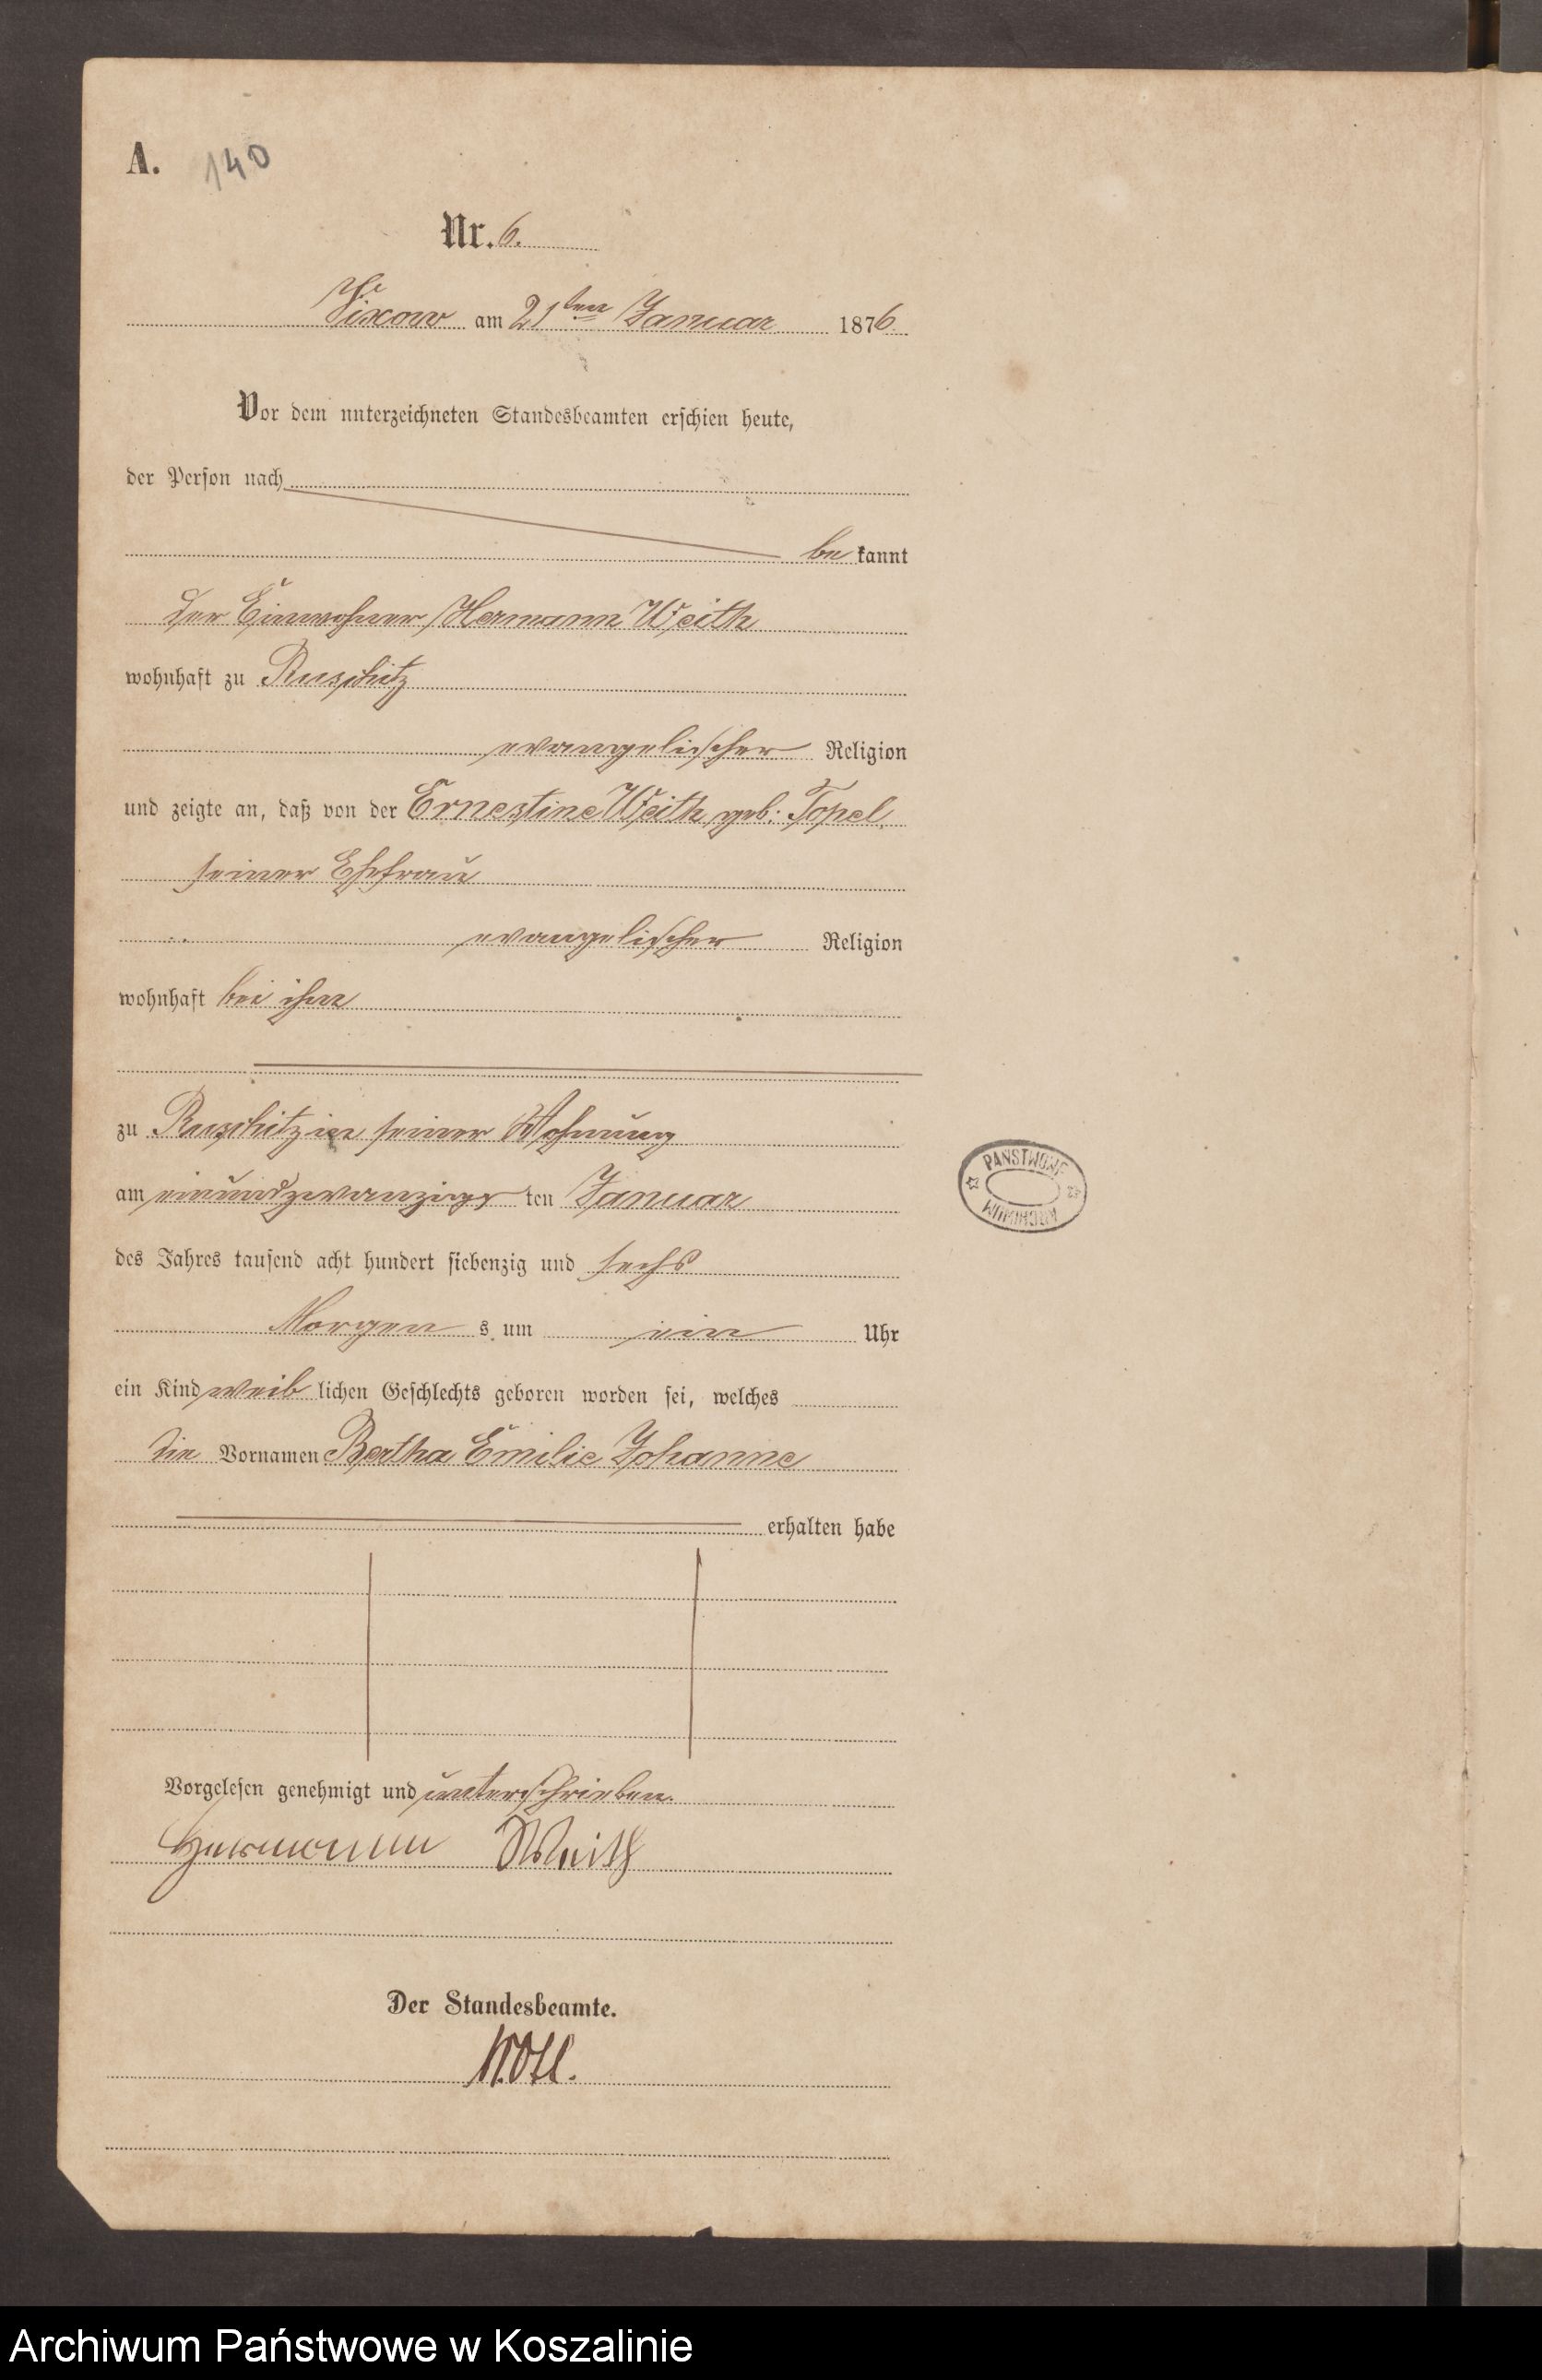 A. 140
Nr. 6.
Vixow am 21ten Januar 1876
Vor dem unterzeichneten Standesbeamten erschien heute,
der Person nach
be kannt
der Einwohner Hermann Weith
wohnhaft zu Ruschitz
evangelischer Religion
und zeigte an, daß von der Ernestine Weith geb: Topel,
seiner Ehefrau
evangelischer Religion
wohnhaft bei ihm
zu Ruschitz in seiner Wohnung
am einundzwanzigs ten Januar
des Jahres tausend acht hundert siebenzig und sechs
Morgen s um ein Uhr
ein Kind weib lichen Geschlechts geboren worden sei, welches
die Vornamen Bertha Emilie Johanne
erhalten habe
Vorgelesen genehmigt und unterschrieben.
Hermann Weith
Der Standesbeamte.
PAŃSTWOWE ARCHIWUM
Archiwum Państwowe w Koszalinie